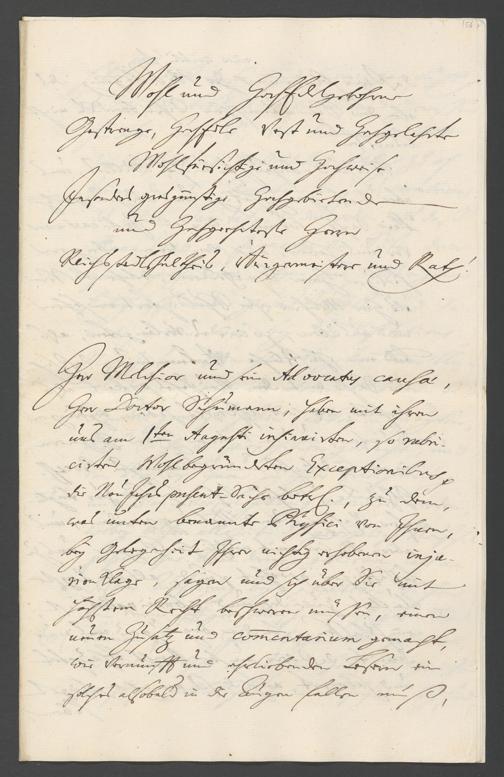 Wohl und HochEdelgebohrne
Gestrenge, HochEdle Vest und Hochgelahrte
Wohlfürsichtige und Hochweise
Insonders grosgünstige Hochgebietende
und Hochgeehrteste Herrn
Reichsstadtschultheis, Bürgermeistere und Rath!
Herr Melchior und sein Advocatus causa,
Herr Doctor Schumann, haben mit ihren
uns am 1ten Augusti insinuirten, so rubri-
cirten Wohlbegründeten Exceptionibus
die betrf., zu dem,
was unten benannte Physici von Ihnen,
bey Gelegenheit Ihrer nichtig erhobenen inju-
rien Klage, sagen und sich über Sie mit
höchstem Recht beschweren müssen, einen
neuen Zusatz und comentarium gemacht,
wie Vernünfft und ehrliebenden Lesern ein
solches alsobald in die Augen fallen muß,